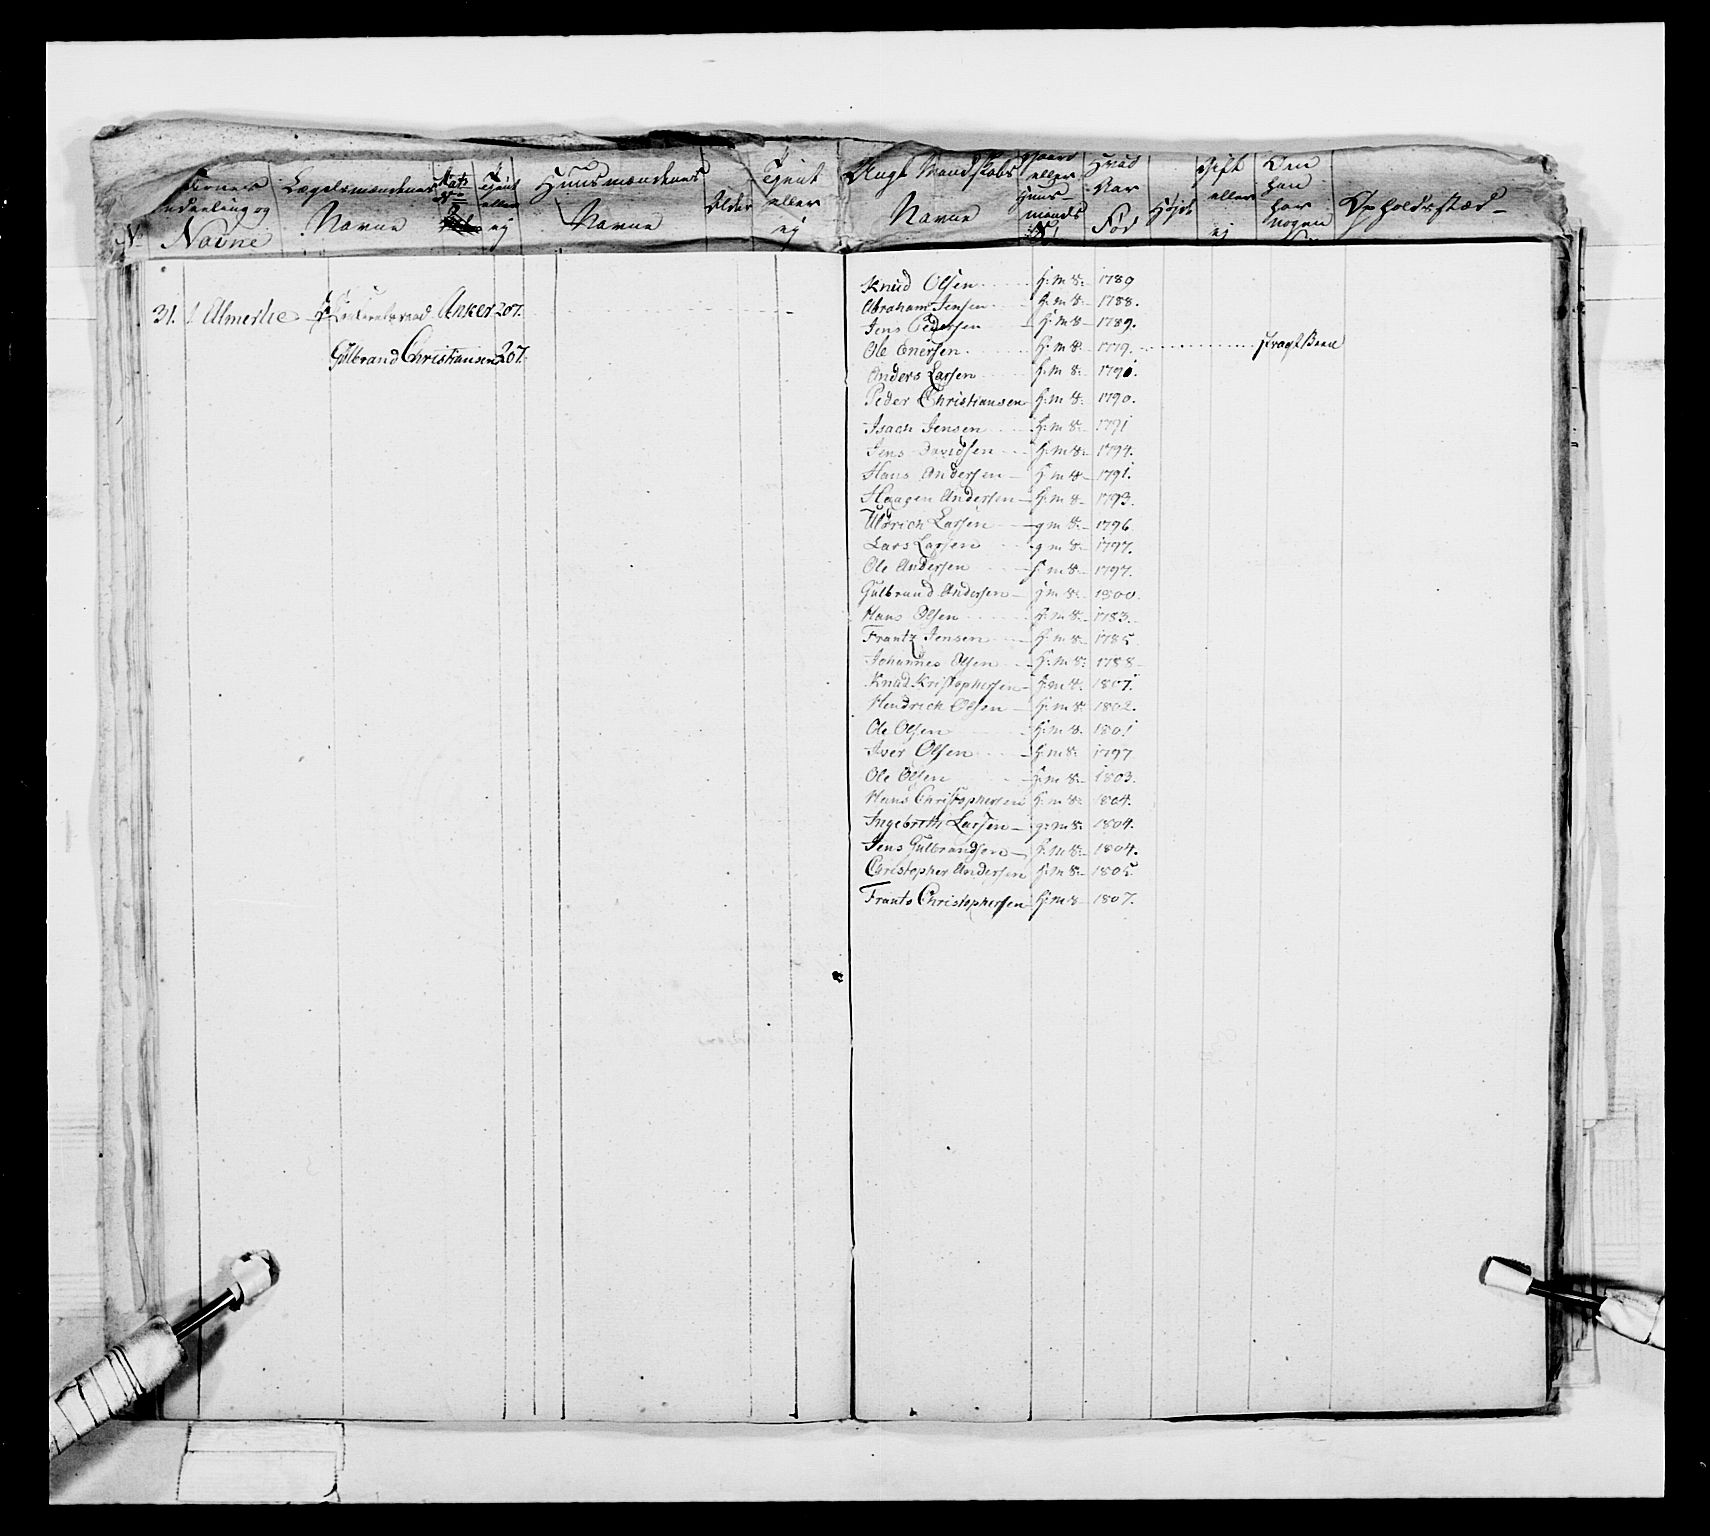 No
Inddeeling og
Navne
Lægdsmændenes
Navne
Mat: No
Tjent
eller
ej
Huusmændenes
Navne
Alder
Tjent
eller
ej
Ungt Mandskabs
Navne
Gaard
eller
Huus-
mands
S:
Hvad
Aar
Fød
Højde
Gift
eller
ej
Om
han
har
nogen
Opholdsstæd
31. Almerlie Anker 207.
Gulbrand Christiansen 207.
Knud Olsen H: m S: 1789
Abraham Jensen H: m S: 1788.
Jens Pedersen H: m S: 1789.
Ole Enersen H: m S: 1779. Been
Anders Larsen H: m S: 1790.
Peder Christiansen H: m S: 1790.
Isach Jensen H: m S: 1791
Jens Davidsen H: m S: 1794.
Hans Andersen H: m S: 1791.
Haagen Andersen H: m S: 1793.
Uldrich Larsen g m S: 1796
Lars Larsen g m S: 1797.
Ole Andersen H: m S: 1797.
Gulbrand Andersen H: m S: 1800.
Hans Olsen H: m S: 1783.
Frantz Jensen H: m S: 1785.
Johannes Olsen H: m S: 1788
Knud Kristophersen H: m S: 1807.
Hendrich Olsen H: m S: 1802.
Ole Olsen H: m S: 1801
Iver Olsen H: m S: 1797
Ole Olsen H: m S: 1803.
Hans Christophersen H: m S: 1804.
Ingebreth Larsen g: m S: 1804.
Jens Gulbrandsen H: m S: 1804.
Christopher Andersen H: m S: 1805
Frants Christophersen H: m S 1807.